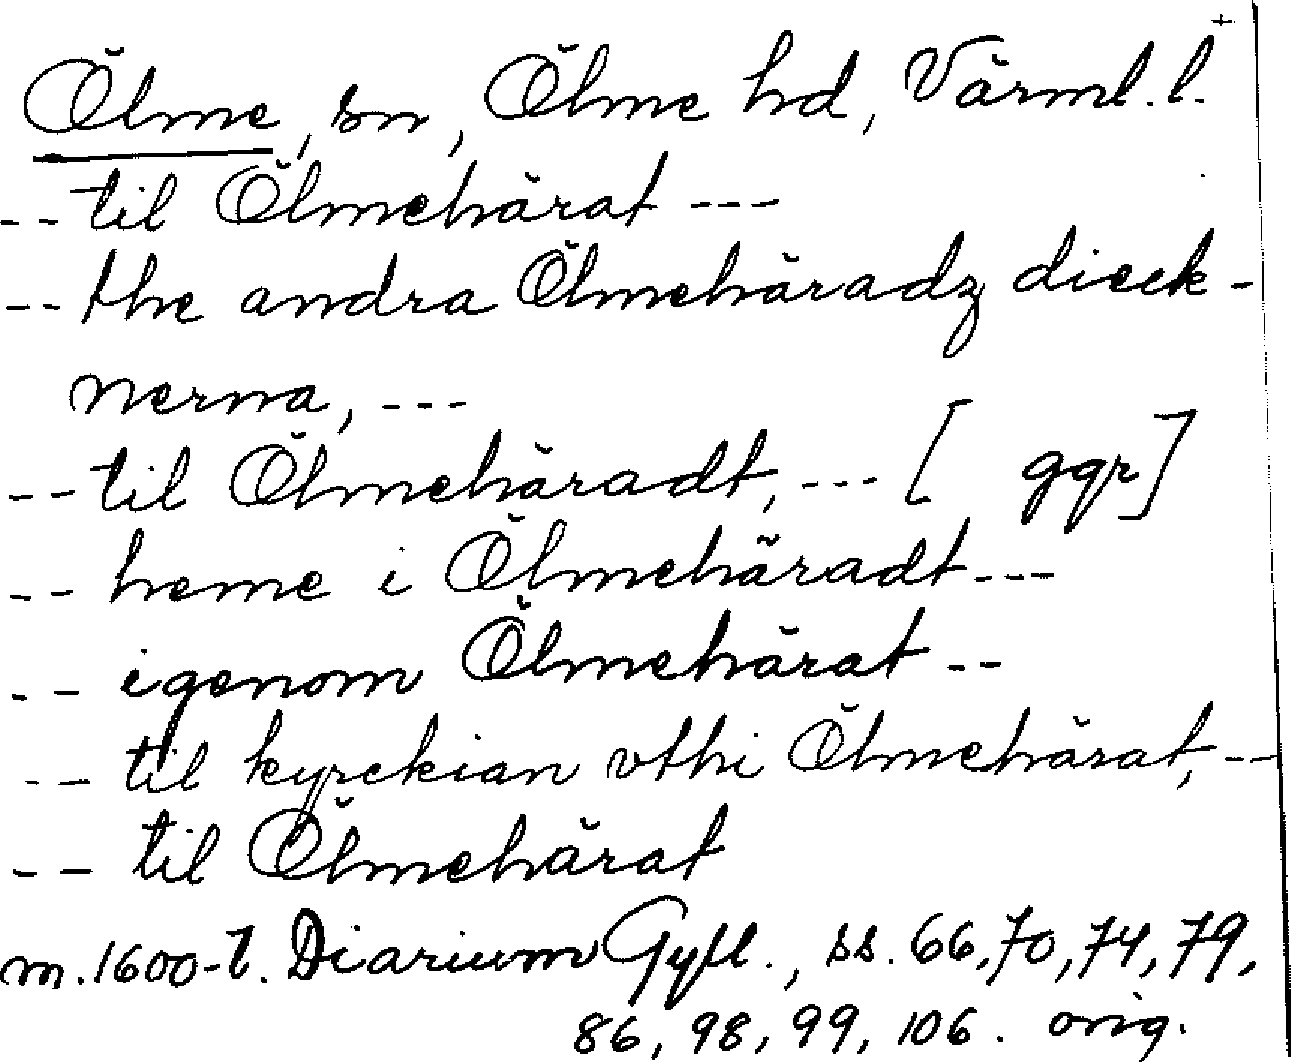 +
Ölme, sn, Ölme hd, Värml. l.
-- til Ölmehärat ---
-- the andra Ölmehäradz dieck-
nerna, ---
-- til Ölmehäradt, --- [ ggr]
-- heme i Ölmehäradt ---
-- igenom Ölmehärat --
-- til kyrckian vthi Ölmehärat, --
-- til Ölmehärat
m. 1600-t. Diarium Gyll., ss. 66, 70, 74, 79,
86, 98, 99, 106. orig.